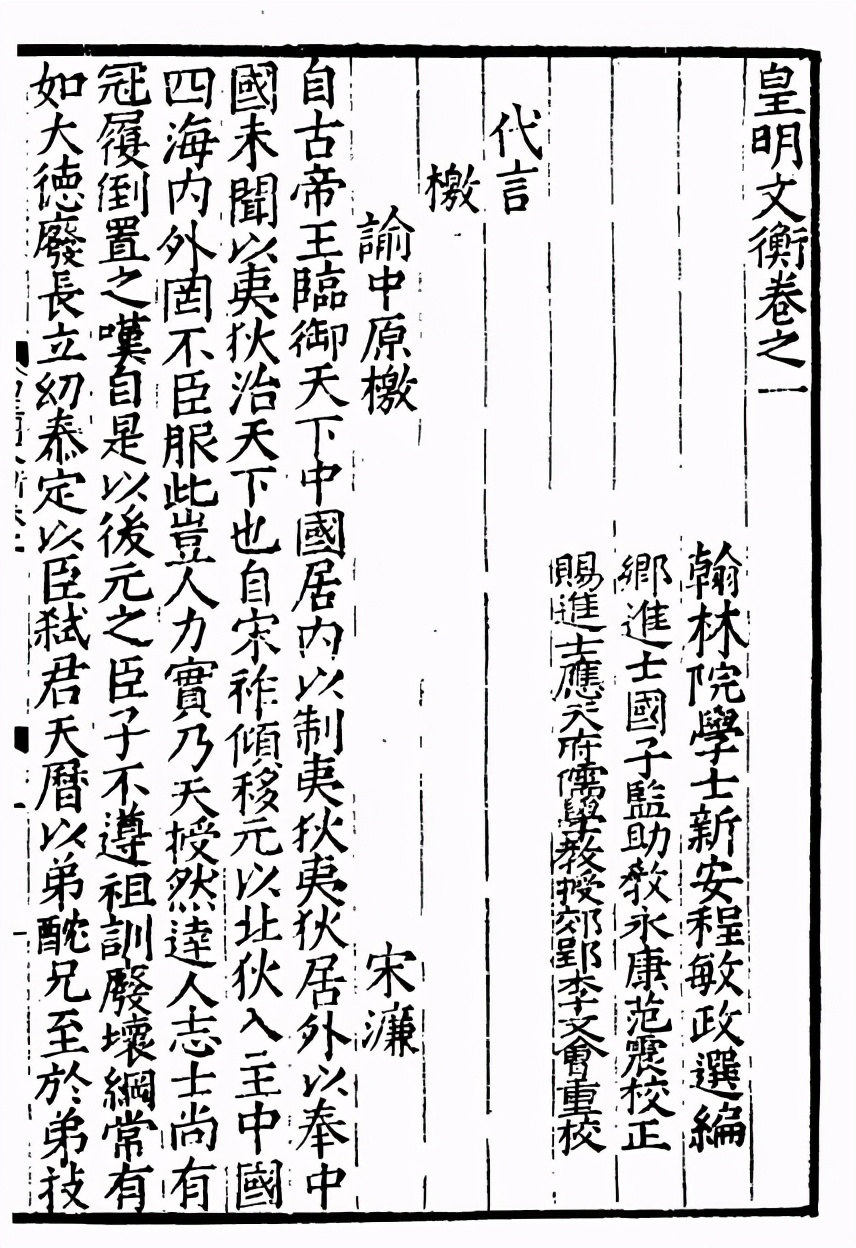 皇明文衡卷之一
翰林院學士新安程敏政選編
鄉進士國子監助教永康范震校正
賜進士應天府儒學教授郊郢李文會重校
代言
檄
諭中原檄 宋濂
自古帝王臨御天下中國居内以制夷狄夷狄居外以奉中
國未聞以夷狄治天下也自宋祚傾移元以北狄入主中國
四海内外罔不臣服此豈人力實乃天授然達人志士尚有
冠履倒置之嘆自是以後元之臣子不遵祖訓廢壞綱常有
如大德廢長立幼泰定以臣弒君天曆以弟酖兄至於弟收